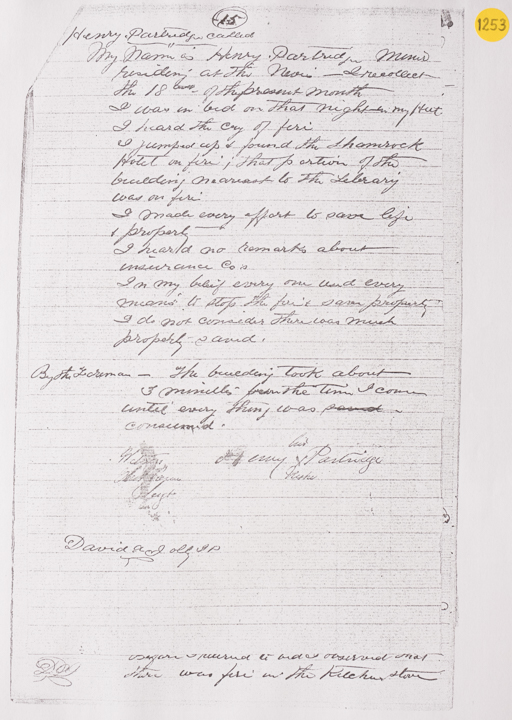 15
1253
Henry Partridge called
My Name is Henry Partridge Miner
residing at the Neive I recollect
the 18 of the present month
I was in bed on that night in my Hut
I heard the cry of fire
I jumped up & found the Shamrock
Hotel on fire; that portion of the
building nearest to the Library
was on fire
I made every effort to save life
& property
I heard no remarks about
insurance Cos
In my belief every one used every
means to stop the fire & save property
I do not consider there was much
property saved.
By the Foreman — The building took about
3 minutes the time I came
until every thing was saved
consumed.
his
Henry X Partridge
David
before I retired to bed observed that
there was fire in the Kitchen stove